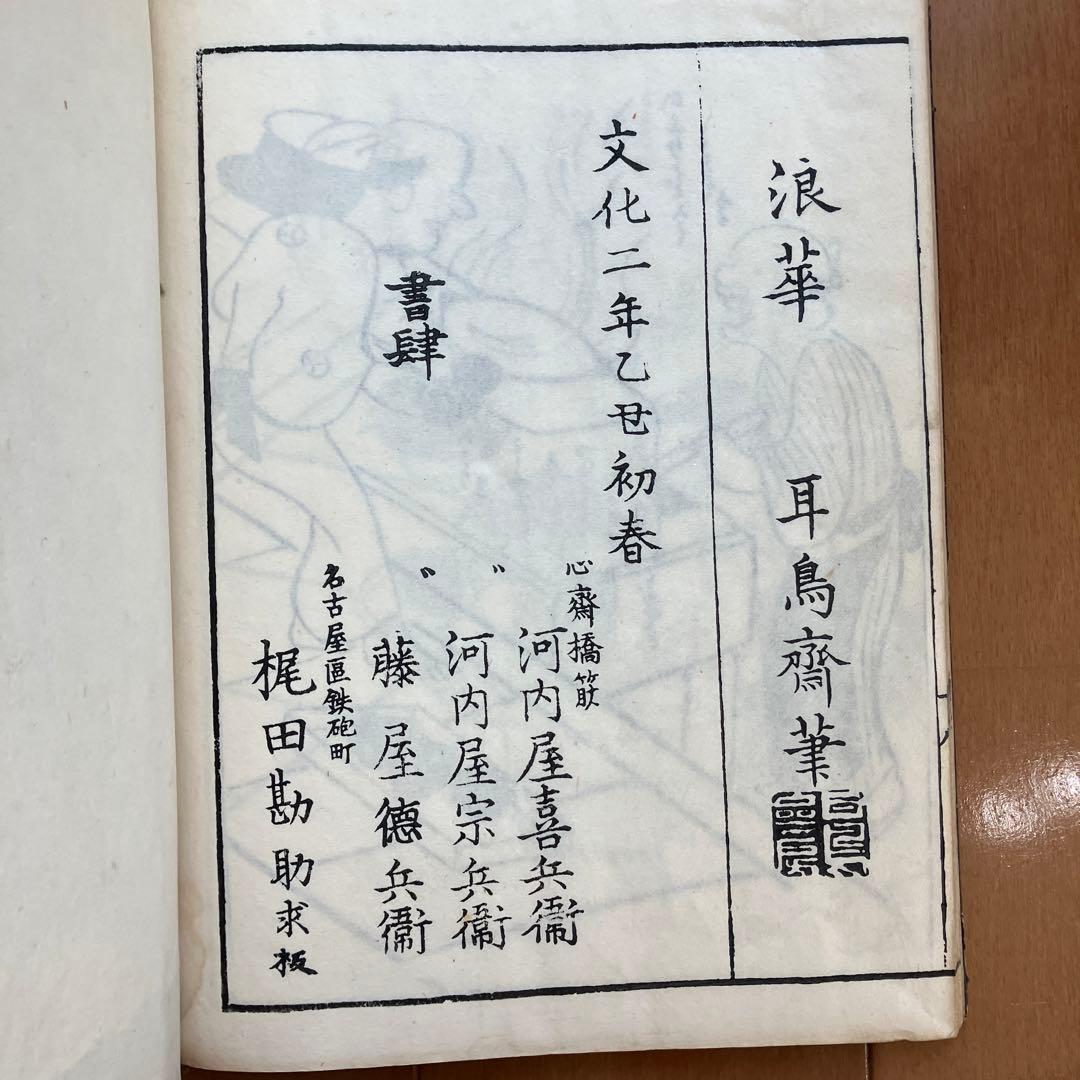 浪華 耳鳥齋筆
文化二年乙丑初春
心齋橋筋
河内屋喜兵衞
〃 河内屋宗兵衞
〃 藤屋德兵衞
名古屋區鉄砲町
梶田勘助求板
書肆